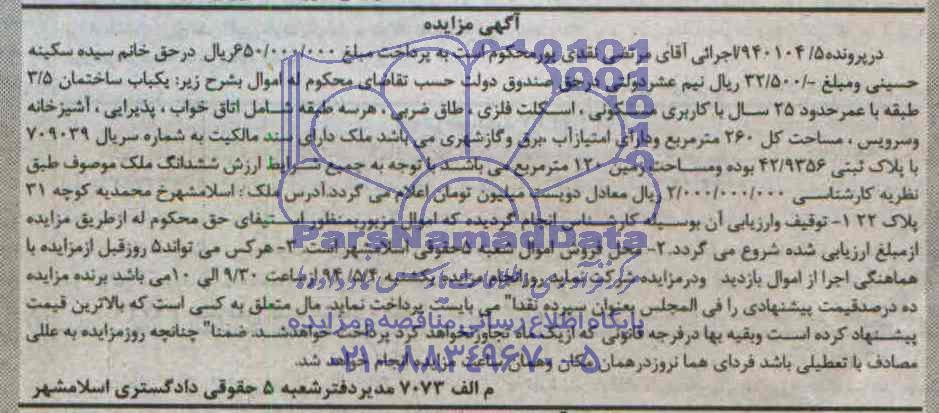 آگهی مزایده
درپرونده ۹۴۰۱۰۴/۵اجرائی آقای مرتضی نقدی پورمحکوم است به پرداخت مبلغ ۶۵۰/۰۰۰/۰۰۰ریال درحق خانم سیده سکینه
حسینی ومبلغ -/۳۲/۵۰۰ ریال نیم عشردولتی درحق صندوق دولت حسب تقاضای محکوم له اموال بشرح زیر: یکباب ساختمان ۳/۵
طبقه با عمرحدود ۲۵ سال با کاربری مسکونی ، اسکلت فلزی ، طاق ضربی ، هرسه طبقه شامل اتاق خواب ، پذیرایی ، آشپزخانه
وسرویس ، مساحت کل ۲۶۰ مترمربع ودارای امتیازآب ،برق وگازشهری می باشد ملک دارای سند مالکیت به شماره سریال ۷۰۹۰۳۹
با پلاک ثبتی ۴۲/۹۳۵۶ بوده ومساحت زمین ۱۲۰ مترمربع می باشند با توجه به جمیع شرایط ارزش ششدانگ ملک موصوف طبق
نظریه کارشناسی ۲/۰۰۰/۰۰۰/۰۰۰ ریال معادل دویست میلیون تومان اعلام می گردد.آدرس ملک : اسلامشهرخ محمدیه کوچه ۳۱
پلاک ۲۲ ۱- توقیف وارزیابی آن بوسیله کارشناس انجام گردیده که اموال مزبوربمنظور استیفای حق محکوم له ازطریق مزایده
ازمبلغ ارزیابی شده شروع می گردد.۲- محل فروش اموال شعبه ۵حقوقی اسلامشهر است.۳- هرکس می تواند۵ روزقبل ازمزایده با
هماهنگی اجرا از اموال بازدید ودرمزایده شرکت نماید.روزانجام مزایده یکشنبه ۹۴/۵/۴ازساعت ۹/۳۰ الی ۱۰می باشد برنده مزایده
ده درصدقیمت پیشنهادی را فی المجلس بعنوان سپرده نقدا" می بایست پرداخت نماید. مال متعلق به کسی است که بالاترین قیمت
پیشنهاد کرده است وبقیه بها درفرجه قانونی که ازیک ماه تجاوزنخواهد کرد پرداخت خواهدشد. ضمنا" چنانچه روزمزایده به عللی
مصادف با تعطیلی باشد فردای هما نروزدرهمان مکان وهمان ساعت مزایده انجام خواهد شد.
م الف ۷۰۷۳ مدیردفترشعبه ۵ حقوقی دادگستری اسلامشهر
ParsNamadData
پایگاه اطلاع رسانی مناقصه و مزایده
۰۲۱-۸۸۳۴۹۶۷۰-۵